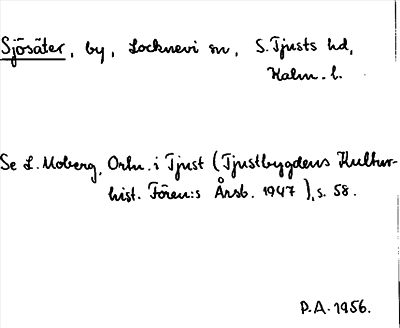 Sjösäter, by, Locknevi sn, S. Tjusts hd,
Kalm. l.
Se L. Moberg, Ortn. i Tjust (Tjustbygdens Kultur-
hist. Fören:s Årsb. 1947), s. 58.
P.A. 1956.